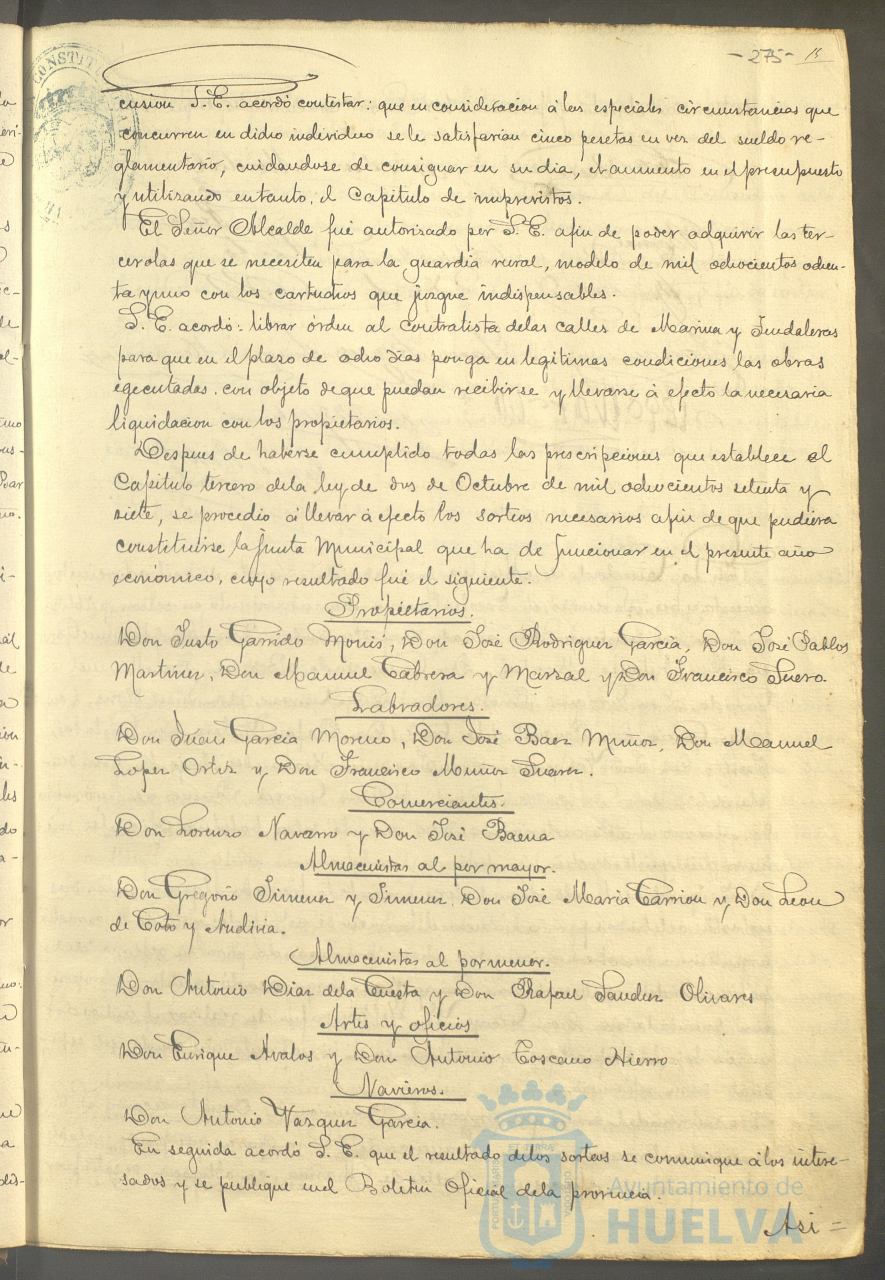 CONSTIT
- 275 - 15
cusion S. E. acordó contestar: que en consideracion á las especiales circunstancias que
concurren en dicho individuo se le satisfarían cinco pesetas en vez del sueldo re-
glamentario, cuidandose de consignar en su dia, el aumento en el presupuesto
y utilizando en tanto, el Capitulo de imprevistos.
El Señor Alcalde fué autorizado por S. E. afin de poder adquirir las ter-
cerolas que se necesiten para la guardia rural, modelo de mil ochocientos ochen-
ta y uno con los cartuchos que juzgue indispensables.
S. E. acordó: librar órden al contratista delas calles de Marina y Tendaleras
para que en el plazo de ocho dias ponga en legitimas condiciones las obras
egecutadas. con objeto de que puedan recibirse y llevarse á efecto la necesaria
liquidacion con los propietarios.
Despues de haberse cumplido todas las prescripciones que establece el
Capitulo tercero dela ley de dos de Octubre de mil ochocientos setenta y
siete, se procedio á llevar á efecto los sorteos necesarios afin de que pudiera
constituirse la Junta Municipal que ha de funcionar en el presente año
económico, cuyo resultado fué el siguiente.
Propietarios.
Don Justo Garrido Monis, Don José Rodriguez Garcia, Don José Pablos
Martinez, Don Manuel Cabrera y Marzal y Don Francisco Suero.
Labradores.
Don Juan Garcia Moreno, Don José Baez Muñoz, Don Manuel
Lopez Ortiz y Don Francisco Muñoz Suarez.
Comerciantes.
Don Lorenzo Navarro y Don José Baena
Almacenistas al por mayor.
Don Gregorio Jimenez y Jimenez, Don José Maria Carrion y Don Leon
de Coto y Andivia.
Almacenistas al por menor.
Don Antonio Diaz dela Cuesta y Don Rafael Sanchez Olivares
Artes y oficios
Don Enrique Avalos y Don Antonio Toscano Hierro
Navieros.
Don Antonio Vazquez Garcia.
En seguida acordó S. E. que el resultado delos sorteos se comunique á los intere-
sados y se publique en el Boletin Oficial dela provincia.
Asi =
Ayuntamiento de
HUELVA